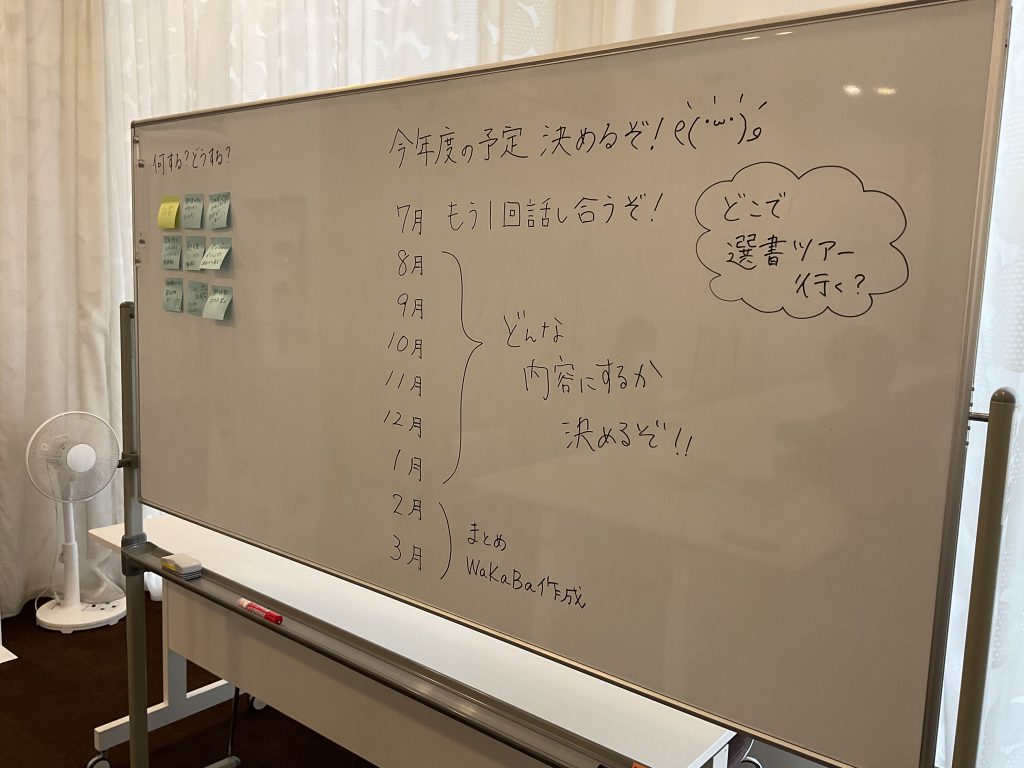 何する?どうする?
今年度の予定 決めるぞ!
7月 もう1回話し合うぞ!
8月
9月
10月
11月
12月
1月
どんな
内容にするか
決めるぞ!!
2月
3月
まとめ
WaKaBa作成
どこで
選書ツアー
行く?